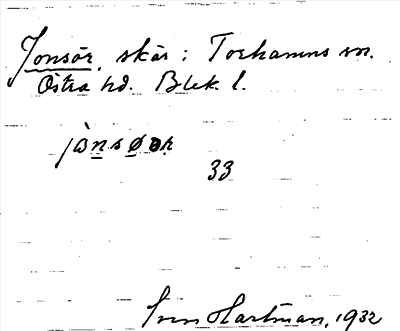 Jonsör, skär i Torhamns sn.
Östra hd. Blek. l.
33
Sven Hartman, 1932